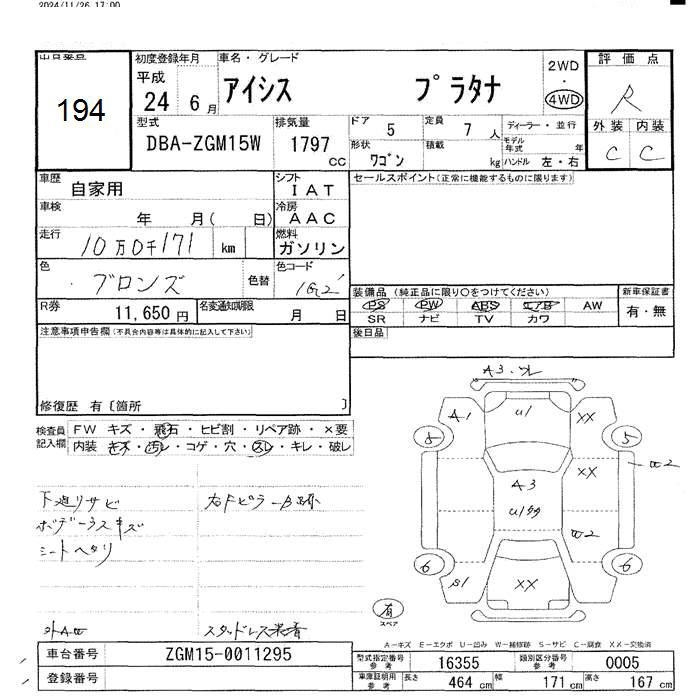 2024/11/26 17:00
194
初度登録年月
平成
24年6月
車名・グレード
アイシス プラタナ
2WD
・
4WD
評価点
R
外装 内装
C C
型式
DBA-ZGM15W
排気量
1797
CC
ドア
5
定員
7人
形状
ワゴン
積載
kg
ディーラー・並行
モデル年式 年
ハンドル 左・右
車歴
自家用
シフト
IAT
車検
年 月( 日)
冷房
AAC
走行
10万0千171 km
燃料
ガソリン
色
ブロンズ
色替
色コード
R券
11,650円
名変通知期限
月 日
注意事項申告欄(不具合内容等は具体的に記入して下さい)
修復歴 有〔箇所 〕
セールスポイント(正常に機能するものに限ります)
装備品(純正品に限り○をつけてください)
PS PW ABS エアB AW
SR ナビ TV カワ
新車保証書
有・無
後日品
検査員記入欄
FW キズ・飛石・ヒビ割・リペア跡・×要
内装 キズ・汚レ・コゲ・穴・スレ・キレ・破レ
下廻りサビ
ボデーラスキズ
シートヘタリ
右Fピラー
スタッドレス装着
A3.
A1
U1
XX
8
5
XX
A3
W2
W2
6
6
S1
XX
有
スペア
A-キズ E-エクボ U-凹み W-補修跡 S-サビ C-腐食 XX-交換済
車台番号
ZGM15-0011295
登録番号
型式指定番号
参考
16355
類別区分番号
参考
0005
車庫証明用
参考
長さ 464 cm 幅 171 cm 高さ 167 cm